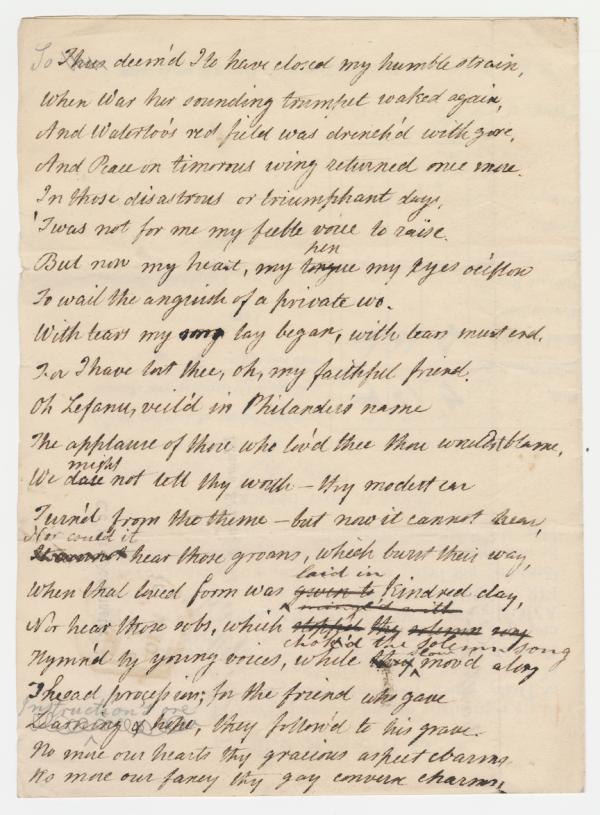 To Thus deem'd I to have closed my humble strain,
When War her sounding trumpet waked again,
And Waterloo's red field was drench'd with gore,
And Peace on timorous wing returned once more.
In those disastrous or triumphant days,
'Twas not for me my feeble voice to raise.
pen
But now my heart, my tongue my eyes o'erflow
To wail the anguish of a private wo.
With tears my song lay began, with tears must end.
For I have lost thee, oh, my faithful friend.
Oh Lefanu, veil'd in Philander's name
The applause of those who lov'd thee thou wouldst blame,
might
We dare not tell thy worth – thy modest ear
Turn'd from the theme – but now it cannot hear,
Nor could it
It cannot hear those groans, which burst their way,
laid in
When that loved form was given to kindred clay,
mingl'd with
Nor hear those sobs, which stopp'd the solemn song
chok'd the solemn song
slow
Hymn'd by young voices, while they mov'd along
The sad procession; for the friend who gave
Instruction's ore
Learning & hope, they follow'd to his grave.
No more our hearts thy gracious aspect warms
No more our fancy thy gay converse charms,